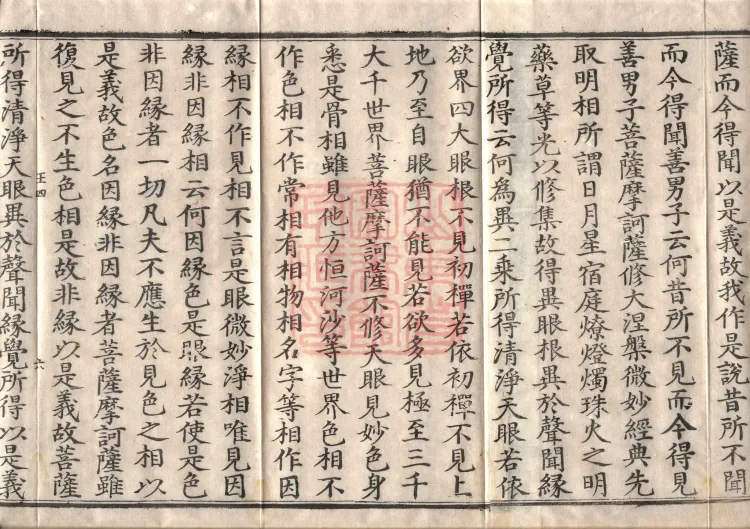 薩而今得聞以是義故我作是說昔所不聞
而今得聞善男子云何昔所不見而今得見
善男子菩薩摩訶薩修大涅槃微妙經典先
取明相所謂日月星宿庭燎燈燭珠火之明
藥草等光以修集故得異眼根異於聲聞緣
覺所得云何為異二乘所得清淨天眼若依
欲界四大眼根不見初禪若依初禪不見上
地乃至自眼猶不能見若欲多見極至三千
大千世界菩薩摩訶薩不修天眼見妙色身
悉是骨相雖見他方恒河沙等世界色相不
作色相不作常相有相物相名字等相作因
緣相不作見相不言是眼微妙淨相唯見因
緣非因緣相云何因緣色是眼緣若使是色
非因緣者一切凡夫不應生於見色之相以
是義故色名因緣非因緣者菩薩摩訶薩雖
復見之不生色相是故非緣以是義故菩薩
王四
六
所得清淨天眼異於聲聞緣覺所得以是義